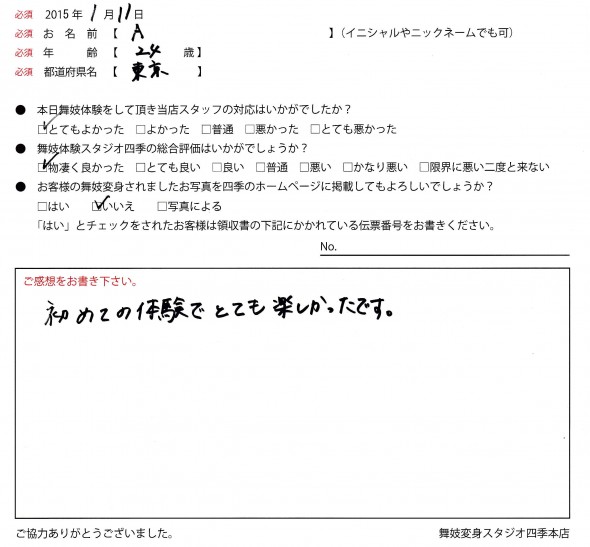 必須 2015年 1月 11日
必須 お名前【 A 】(イニシャルやニックネームでも可)
必須 年齢【 24 歳】
必須 都道府県名【 東京 】
● 本日舞妓体験をして頂き当店スタッフの対応はいかがでしたか?
☑とてもよかった □よかった □普通 □悪かった □とても悪かった
● 舞妓体験スタジオ四季の総合評価はいかがでしょうか?
☑物凄く良かった □とても良い □良い □普通 □悪い □かなり悪い □限界に悪い二度と来ない
● お客様の舞妓変身されましたお写真を四季のホームページに掲載してもよろしいでしょうか?
□はい ☑いいえ □写真による
「はい」とチェックをされたお客様は領収書の下記にかかれている伝票番号をお書きください。
No.
ご感想をお書き下さい。
初めての体験でとても楽しかったです。
ご協力ありがとうございました。 舞妓変身スタジオ四季本店